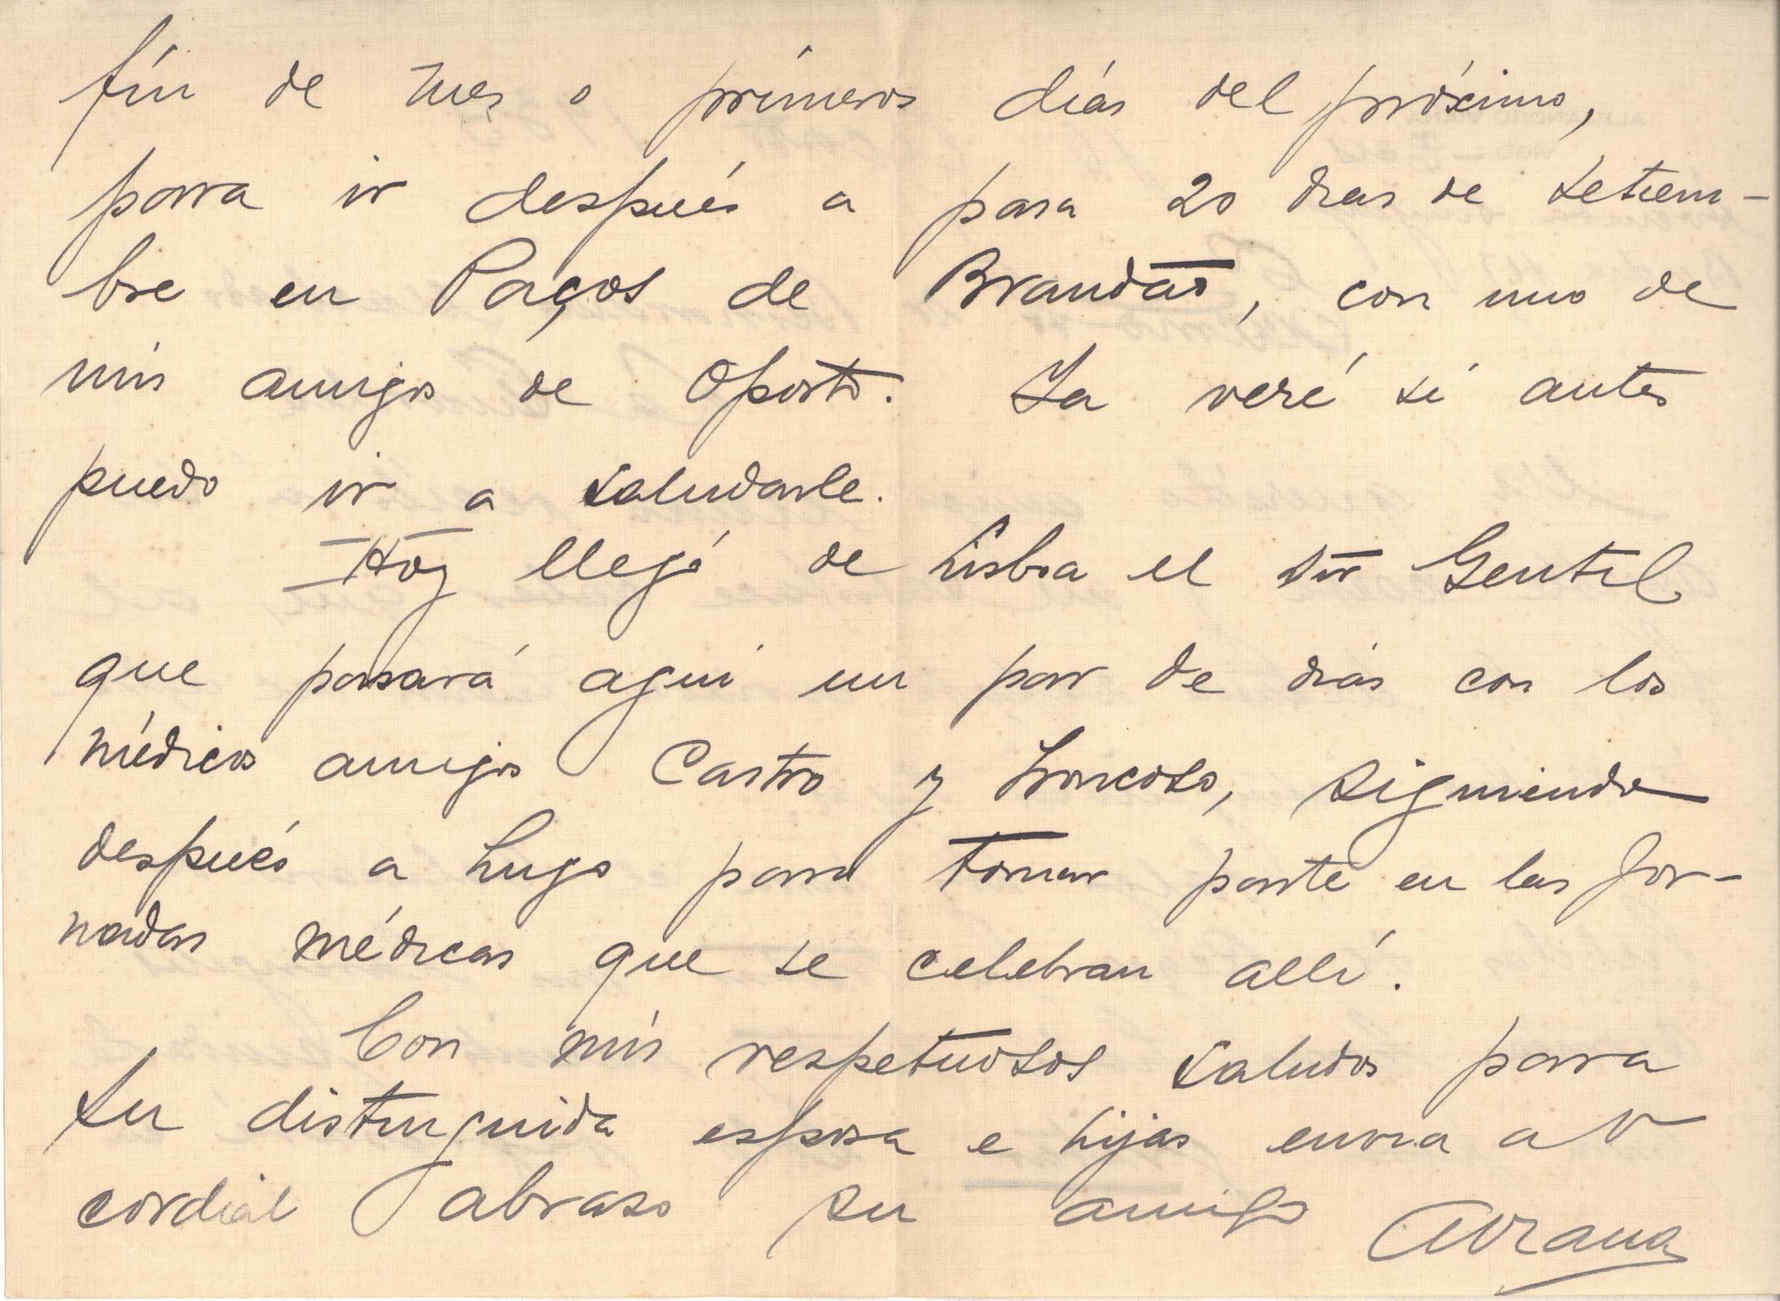 fín de mes o primeros días del próximo,
para ir después a pasa 20 dias de setiem-
bre en Paços de Brandão, con uno de
mis amigos de Oporto. Ya veré si antes
puedo ir a saludarle.
Hoy llegó de Lisboa el Sor Gentil
que pasará aqui un par de diás con los
médicos amigos Castro y Troncoso, siguiendo
después a Lugo para tomar parte en las Jor-
nadas médicas que se celebran allí.
Con mis respetuosos saludos para
su distinguida esposa e hijas envia a V
cordial abrazo su amigo